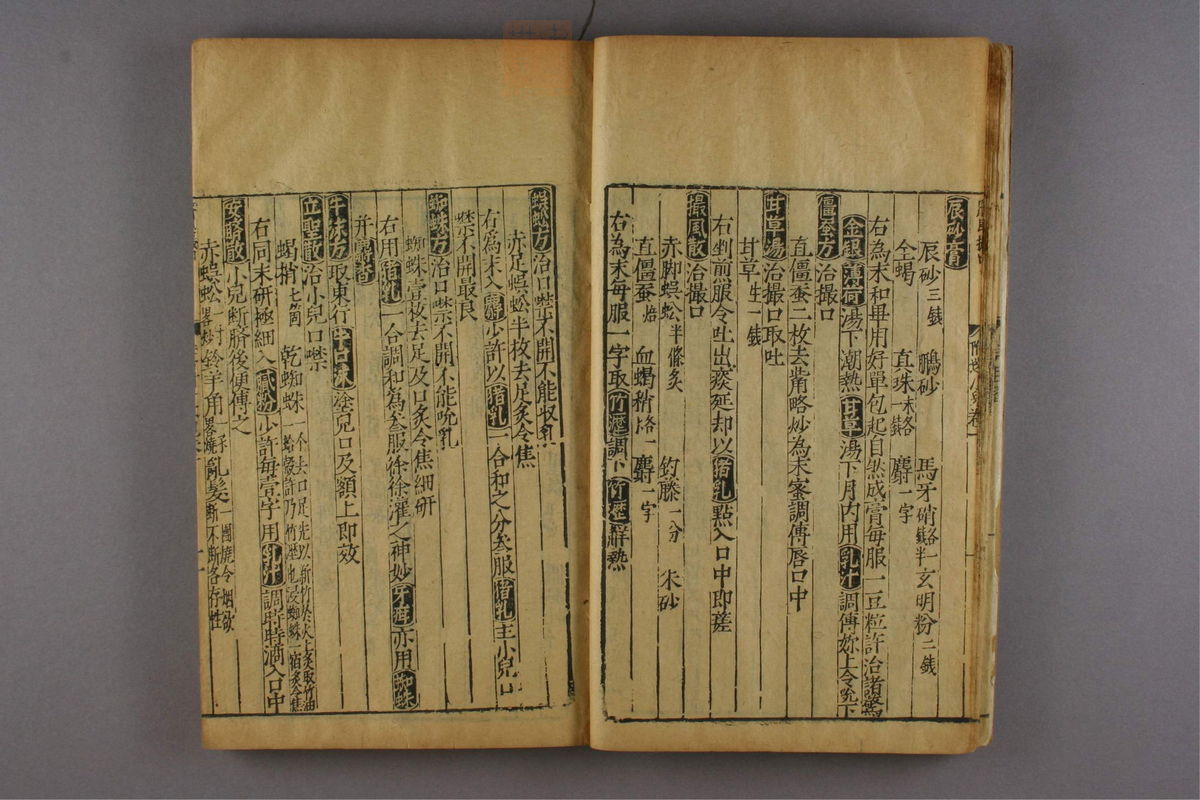 辰砂膏
辰砂三錢 鵬砂 馬牙硝各錢半 玄明粉二錢
全蝎 真珠末各一錢 麝一字
右為末和畢用好單包起自然成膏每服一豆粒許治諸驚
金銀薄荷湯下潮熱甘草湯下月內用乳汁調傅妳上令吮下
僵蚕方治撮口
直僵蚕二枚去觜略炒為末蜜調傅唇口中
甘草湯治撮口取吐
甘草生一錢
右剉煎服令吐出痰涎却以猪乳點入口中即瘥
撮風散治撮口
赤脚蜈蚣半條炙 釣藤一分 朱砂
直僵蚕焙 血蝎梢各一 麝一字
右為末每服一字取竹瀝調下竹瀝辟熱
蜈蚣方治口噤不開不能収乳
赤足蜈蚣半枚去足炙令焦
右為末入麝少許以猪乳一合和之分叁服猪乳主小兒口
噤不開最良
蜘蛛方治口噤不開不能吮乳
蜘蛛壹枚去足及口炙令焦細研
右用猪乳一合調和為叁服徐徐灌之神妙牙疳亦用蜘蛛
并麝香
牛涎方取東行牛口沫塗兒口及額上即效
立聖散治小兒口噤
蝎梢七箇 乾蜘蛛一个去口足先以新竹於火上炙取竹油一蛤殼許乃竹瀝也浸蜘蛛一宿炙令焦
右同末研極細入膩粉少許每壹字用乳汁調時時滴入口中
安臍散小兒斷臍後便傅之
赤蜈蚣 羚羊角略燒 乱髮一團燒令烟欲斷不斷各存性